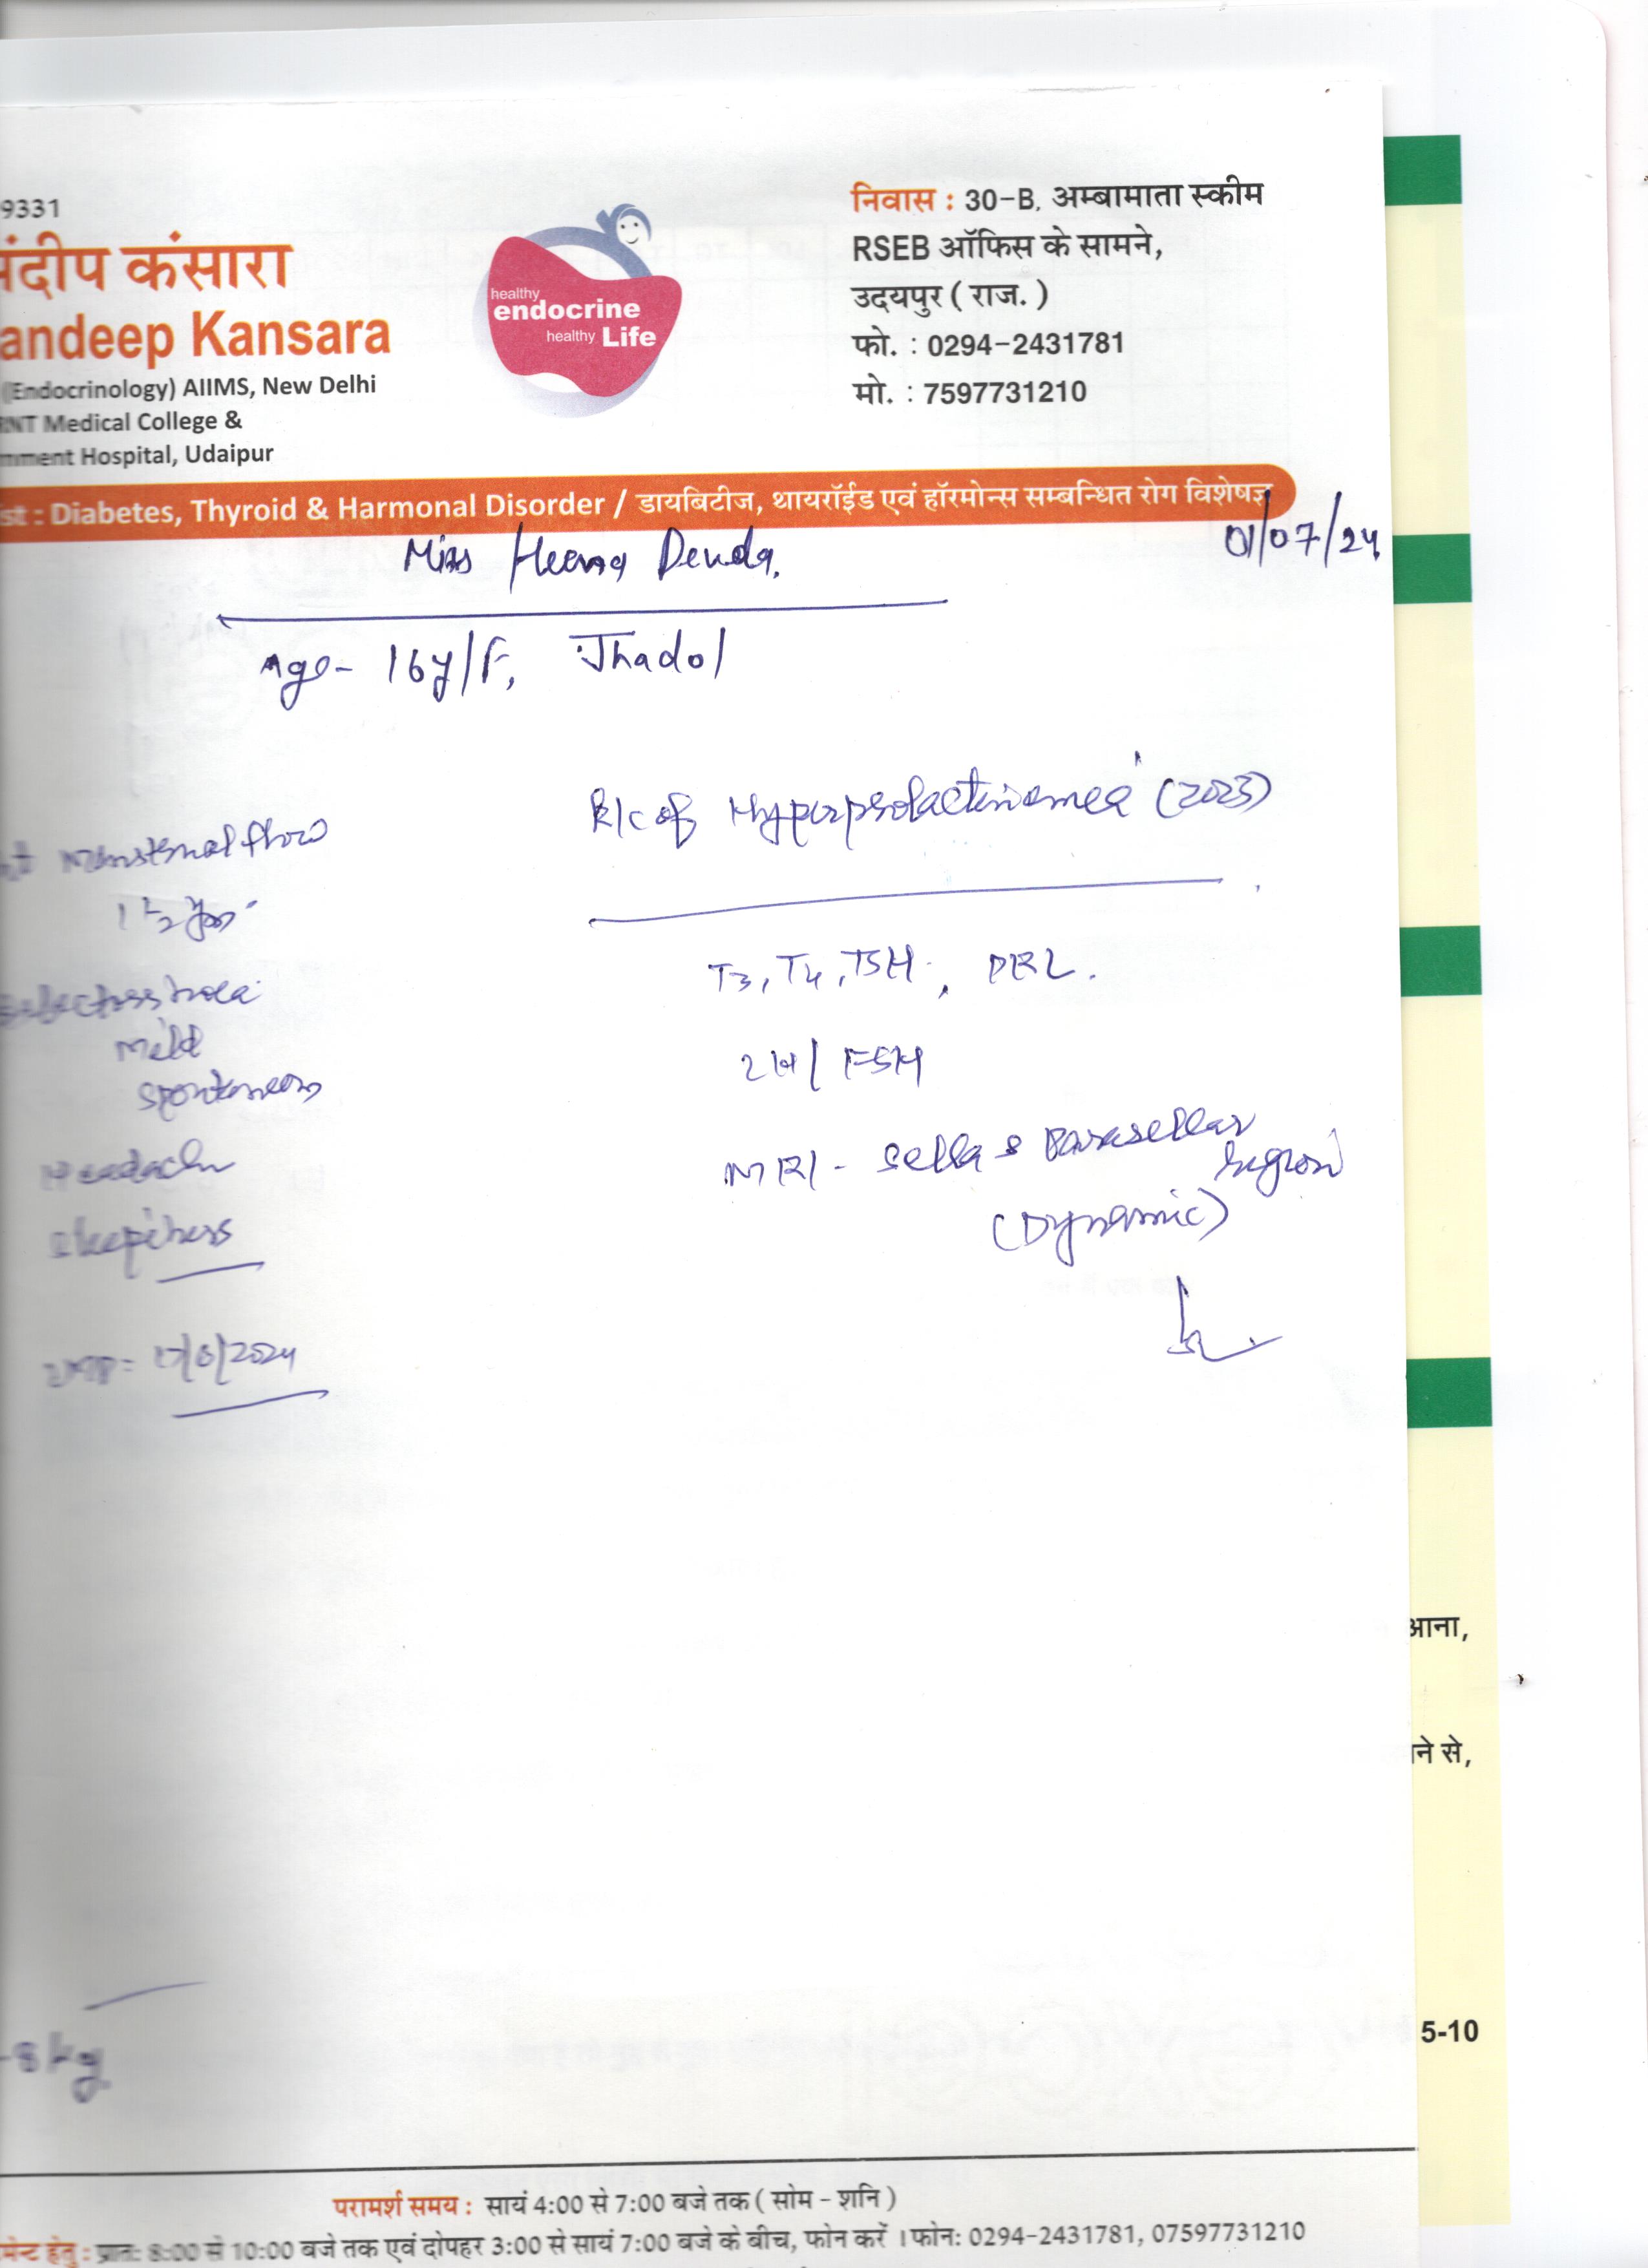 9331
संदीप कंसारा
andeep Kansara
(Endocrinology) AIIMS, New Delhi
RNT Medical College &
nment Hospital, Udaipur
healthy
endocrine
healthy Life
निवास : 30-B, अम्बामाता स्कीम
RSEB ऑफिस के सामने,
उदयपुर ( राज. )
फो. : 0294-2431781
मो. : 7597731210
st : Diabetes, Thyroid & Harmonal Disorder / डायबिटीज, थायरॉईड एवं हॉरमोन्स सम्बन्धित रोग विशेषज्ञ
01/07/24
Miss Heena
Age- 16y/F, Jhadol
K/c of Hyperprolactinemea (2023)
Menstrual flow
1 1/2 year
Mild
spontaneous
Headache
sleepiness
/6/2024
T3, T4, TSH, PRL.
LH / FSH
MRI - sella & Parasellar
region
(Dynamic)
8kg
आना,
ने से,
5-10
परामर्श समय : सायं 4:00 से 7:00 बजे तक ( सोम - शनि )
मेन्ट हेतु : प्रातः 8:00 से 10:00 बजे तक एवं दोपहर 3:00 से सायं 7:00 बजे के बीच, फोन करें । फोन: 0294-2431781, 07597731210